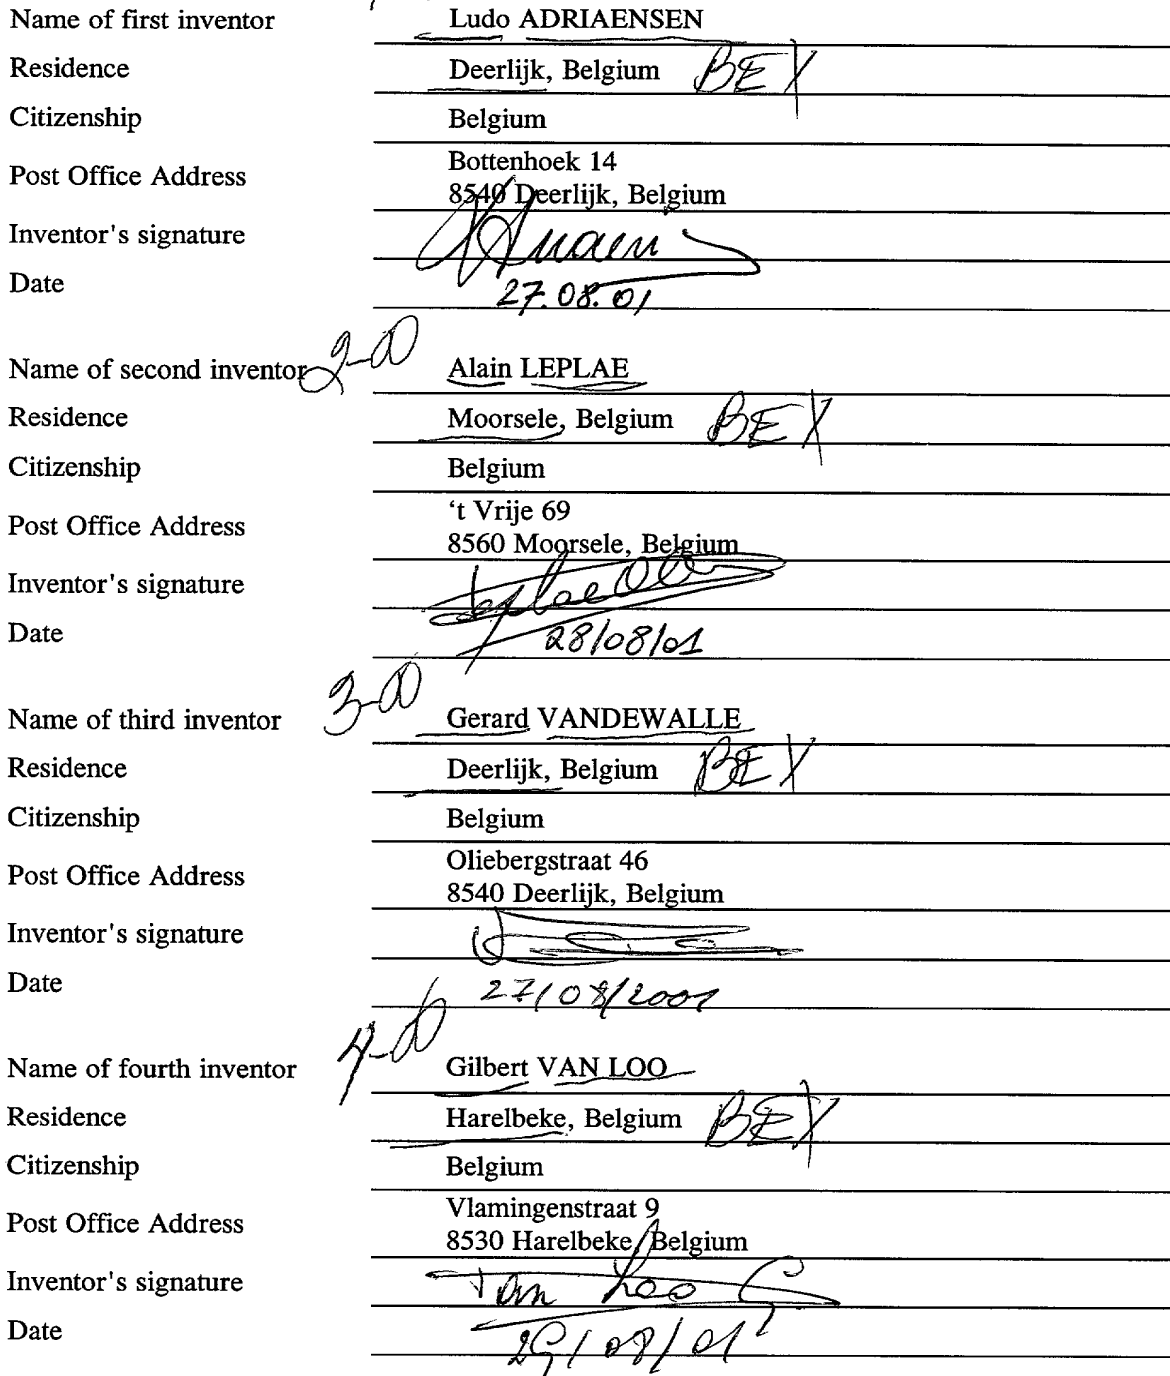 Name of first inventor Ludo ADRIAENSEN
Residence Deerlijk, Belgium BEX
Citizenship Belgium
Post Office Address Bottenhoek 14
8540 Deerlijk, Belgium
Inventor's signature
Date 27.08.01
2-00
Name of second inventor Alain LEPLAE
Residence Moorsele, Belgium BEX
Citizenship Belgium
Post Office Address ‘t Vrije 69
8560 Moorsele, Belgium
Inventor's signature
Date 28/08/01
3-00
Name of third inventor Gerard VANDEWALLE
Residence Deerlijk, Belgium BEX
Citizenship Belgium
Post Office Address Oliebergstraat 46
8540 Deerlijk, Belgium
Inventor's signature
Date 27/08/2001
4-00
Name of fourth inventor Gilbert VAN LOO
Residence Harelbeke, Belgium BEX
Citizenship Belgium
Post Office Address Vlamingenstraat 9
8530 Harelbeke, Belgium
Inventor's signature Van Loo G
Date 29/08/01